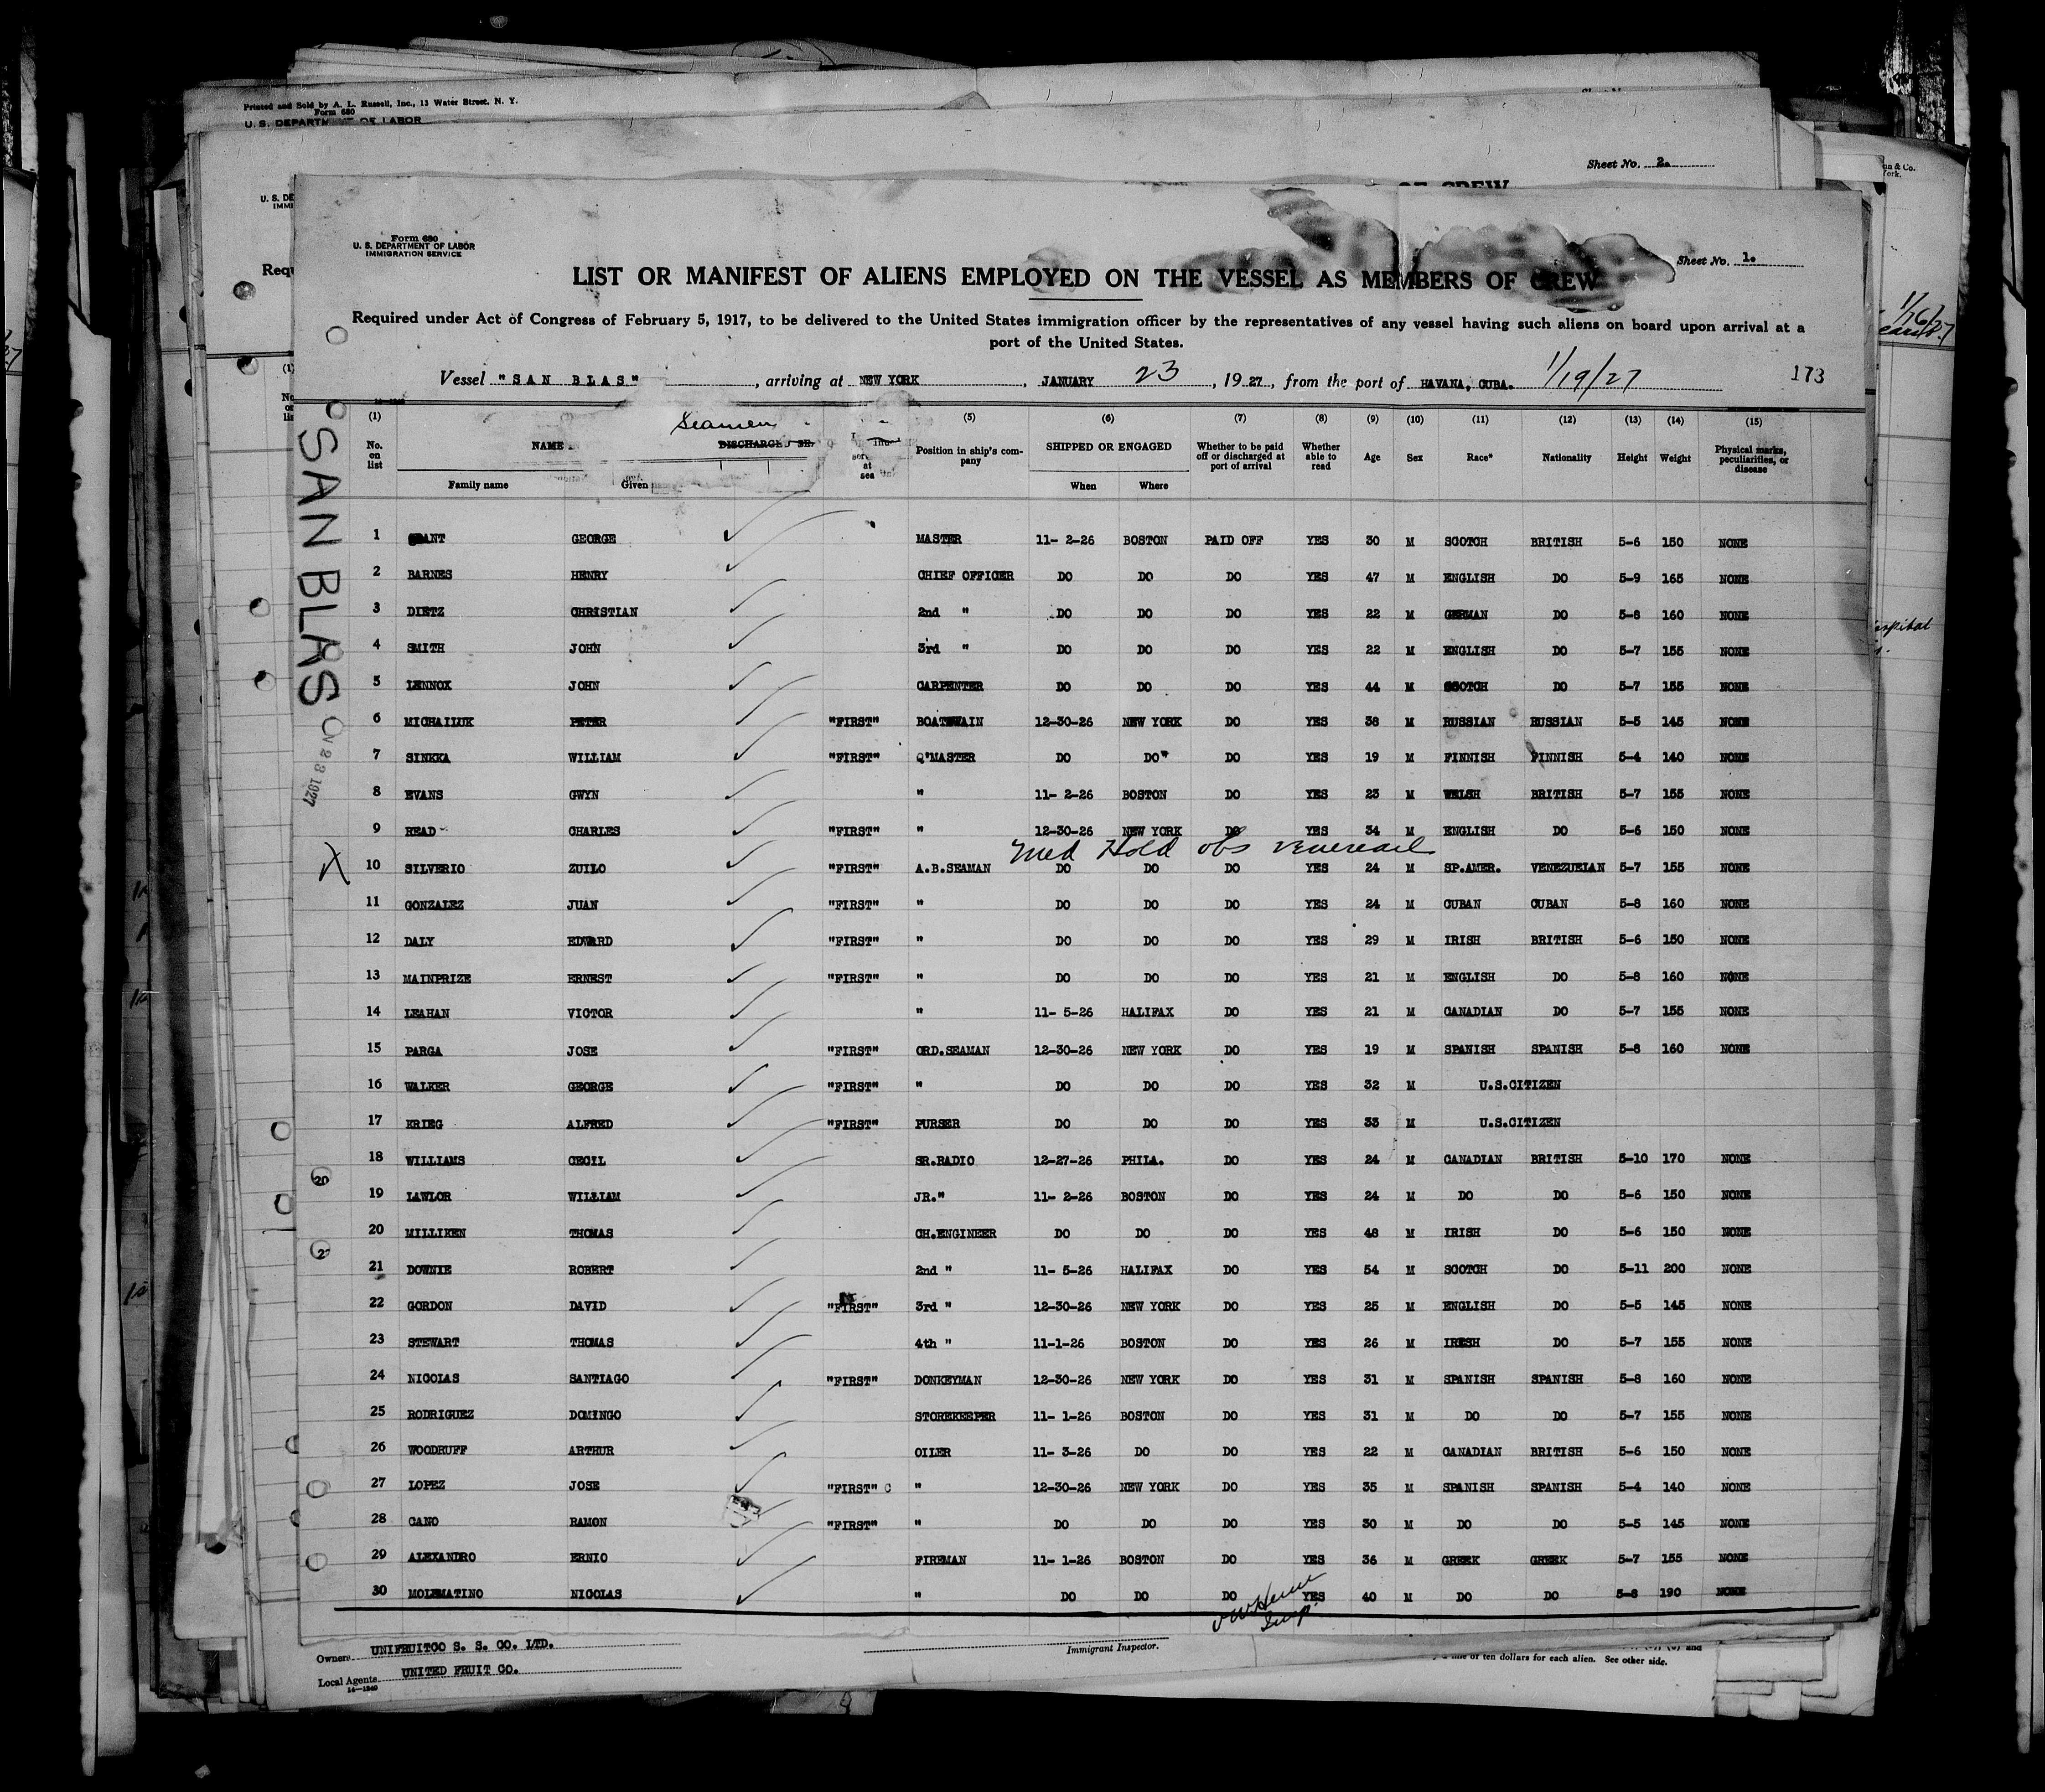 Printed and Sold by A. L. Russell, Inc., 13 Water Street, N. Y.
Form 680
U. S. DEPARTMENT OF LABOR
Sheet No. 2.
OF CREW
U. S. DE
IMMI
Requ
Form 680
U. S. DEPARTMENT OF LABOR
IMMIGRATION SERVICE
Sheet No. 1.
LIST OR MANIFEST OF ALIENS EMPLOYED ON THE VESSEL AS MEMBERS OF CREW
Required under Act of Congress of February 5, 1917, to be delivered to the United States immigration officer by the representatives of any vessel having such aliens on board upon arrival at a
port of the United States.
Vessel "SAN BLAS", arriving at NEW YORK, JANUARY 23, 1927, from the port of HAVANA, CUBA. 1/19/27 173
SAN BLAS
(1) (5) (6) (7) (8) (9) (10) (11) (12) (13) (14) (15)
Seamen
No. on list NAME DISCHARGED at sea Position in ship's company SHIPPED OR ENGAGED Whether to be paid off or discharged at port of arrival Whether able to read Age Sex Race* Nationality Height Weight Physical marks, peculiarities, or disease
Family name Given When Where
1 GRANT GEORGE MASTER 11- 2-26 BOSTON PAID OFF YES 30 M SCOTCH BRITISH 5-6 150 NONE
2 BARNES HENRY CHIEF OFFICER DO DO DO YES 47 M ENGLISH DO 5-9 165 NONE
3 DIETZ CHRISTIAN 2nd " DO DO DO YES 22 M GERMAN DO 5-8 160 NONE
4 SMITH JOHN 3rd " DO DO DO YES 22 M ENGLISH DO 5-7 155 NONE
5 LENNOX JOHN CARPENTER DO DO DO YES 44 M SCOTCH DO 5-7 155 NONE
6 MICHAILUK PETER "FIRST" BOATSWAIN 12-30-26 NEW YORK DO YES 38 M RUSSIAN RUSSIAN 5-5 145 NONE
7 SINKKA WILLIAM "FIRST" Q'MASTER DO DO" DO YES 19 M FINNISH FINNISH 5-4 140 NONE
8 EVANS GWYN " 11- 2-26 BOSTON DO YES 23 M WELSH BRITISH 5-7 155 NONE
9 READ CHARLES "FIRST" " 12-30-26 NEW YORK DO YES 34 M ENGLISH DO 5-6 150 NONE
Med Hold obs venereal
X 10 SILVERIO ZUILO "FIRST" A.B.SEAMAN DO DO DO YES 24 M SP.AMER. VENEZUELAN 5-7 155 NONE
11 GONZALEZ JUAN "FIRST" " DO DO DO YES 24 M CUBAN CUBAN 5-8 160 NONE
12 DALY EDWARD "FIRST" " DO DO DO YES 29 M IRISH BRITISH 5-6 150 NONE
13 MAINPRIZE ERNEST "FIRST" " DO DO DO YES 21 M ENGLISH DO 5-8 160 NONE
14 LEAHAN VICTOR " 11- 5-26 HALIFAX DO YES 21 M CANADIAN DO 5-7 155 NONE
15 PARGA JOSE "FIRST" ORD.SEAMAN 12-30-26 NEW YORK DO YES 19 M SPANISH SPANISH 5-8 160 NONE
16 WALKER GEORGE "FIRST" " DO DO DO YES 32 M U.S.CITIZEN
17 KRIEG ALFRED "FIRST" PURSER DO DO DO YES 33 M U.S.CITIZEN
18 WILLIAMS CECIL SR.RADIO 12-27-26 PHILA. DO YES 24 M CANADIAN BRITISH 5-10 170 NONE
19 LAWLOR WILLIAM JR." 11- 2-26 BOSTON DO YES 24 M DO DO 5-6 150 NONE
20 MILLIKEN THOMAS CH.ENGINEER DO DO DO YES 48 M IRISH DO 5-6 150 NONE
21 DOWNIE ROBERT 2nd " 11- 5-26 HALIFAX DO YES 54 M SCOTCH DO 5-11 200 NONE
22 GORDON DAVID "FIRST" 3rd " 12-30-26 NEW YORK DO YES 25 M ENGLISH DO 5-5 145 NONE
23 STEWART THOMAS 4th " 11-1-26 BOSTON DO YES 26 M IRISH DO 5-7 155 NONE
24 NICOLAS SANTIAGO "FIRST" DONKEYMAN 12-30-26 NEW YORK DO YES 31 M SPANISH SPANISH 5-8 160 NONE
25 RODRIGUEZ DOMINGO STOREKEEPER 11- 1-26 BOSTON DO YES 31 M DO DO 5-7 155 NONE
26 WOODRUFF ARTHUR OILER 11- 3-26 DO DO YES 22 M CANADIAN BRITISH 5-6 150 NONE
27 LOPEZ JOSE "FIRST" C " 12-30-26 NEW YORK DO YES 35 M SPANISH SPANISH 5-4 140 NONE
28 CANO RAMON "FIRST" " DO DO DO YES 30 M DO DO 5-5 145 NONE
29 ALEXANDRO ERNIO FIREMAN 11- 1-26 BOSTON DO YES 36 M GREEK GREEK 5-7 155 NONE
30 MOLEMATINO NICOLAS " DO DO DO YES 40 M DO DO 5-8 190 NONE
Owners UNIFRUITCO S. S. CO. LTD.
Immigrant Inspector.
Local Agents UNITED FRUIT CO.
14-1240
of ten dollars for each alien. See other side.